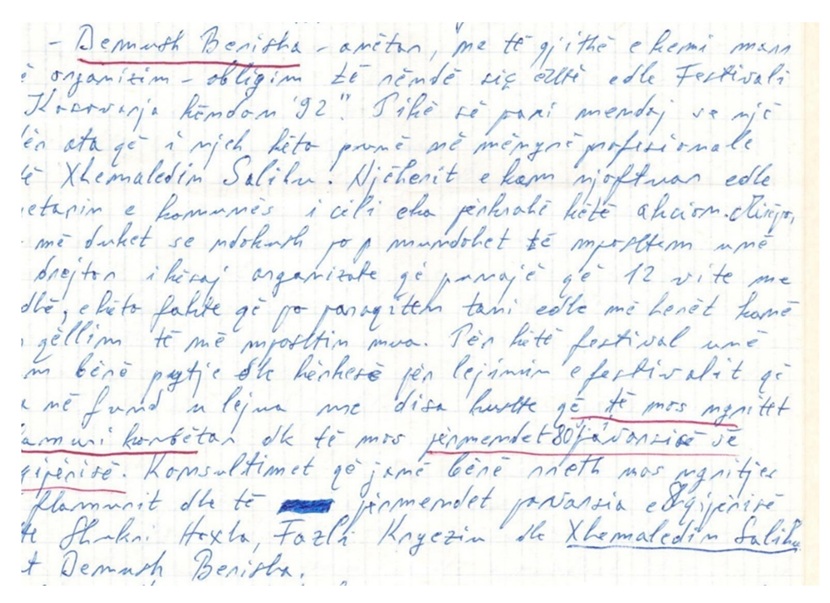 - Demush Berisha - anëtar, me të gjithë e kemi marr
ë organizim - obligim të rëndë siç është edhe Festivali
Kosovarja këndon '92". Pikë së pari mendoj se një
ër ata që i njeh këto punë në mënyrë profesionale
ë Xhemaledin Salihu. Njëherit e kam njoftuar edhe
etarin e komunës i cili e ka përkrahë këtë akcion. Mirëpo,
më duket se ndokush po p mundohet të mposhtem unë
drejtor i kësaj organizate që punojë që 12 vite me
dhë, e këto fakte që po paraqitem tani edhe më herët kanë
qëllim të më mposhtin mua. Për këtë festival unë
m bërë pyetje dhe kërkesë për lejimin e festivalit që
në fund u lejua me disa kushte që të mos ngritët
amuri kombëtar dhe të mos përmendet 80 vjavarsisë së
qipërisë. Konsultimet që janë bërë rreth mos ngritjes
flamurit dhe të përmendet pavarsia e Shqipërisë
Shukri Hoxha, Fazli Kryeziu dhe Xhemaledin Salihu
t Demush Berisha.